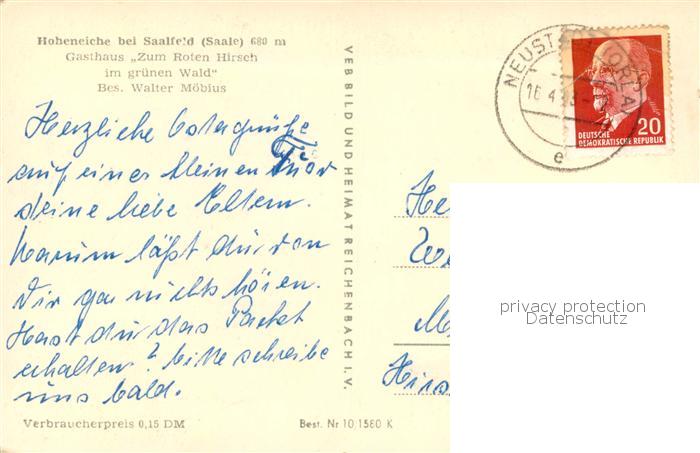 Hoheneiche bei Saalfeld (Saale) 680 m
Gasthaus „Zum Roten Hirsch
im grünen Wald"
Bes. Walter Möbius
Herzliche Ostergrüße
auf einer kleinen
deine liebe Eltern.
Warum läßt du von
Dir gar nichts hören.
Hast du das Packet
erhalten? bitte schreibe
uns bald.
Verbraucherpreis 0,15 DM
VEB BILD UND HEIMAT REICHENBACH I. V.
Best. Nr 10,1580 K
NEUSTADT (ORLA)
16.4.
e
20
DEUTSCHE
DEMOKRATISCHE REPUBLIK
He
We
Hirs
privacy protection
Datenschutz